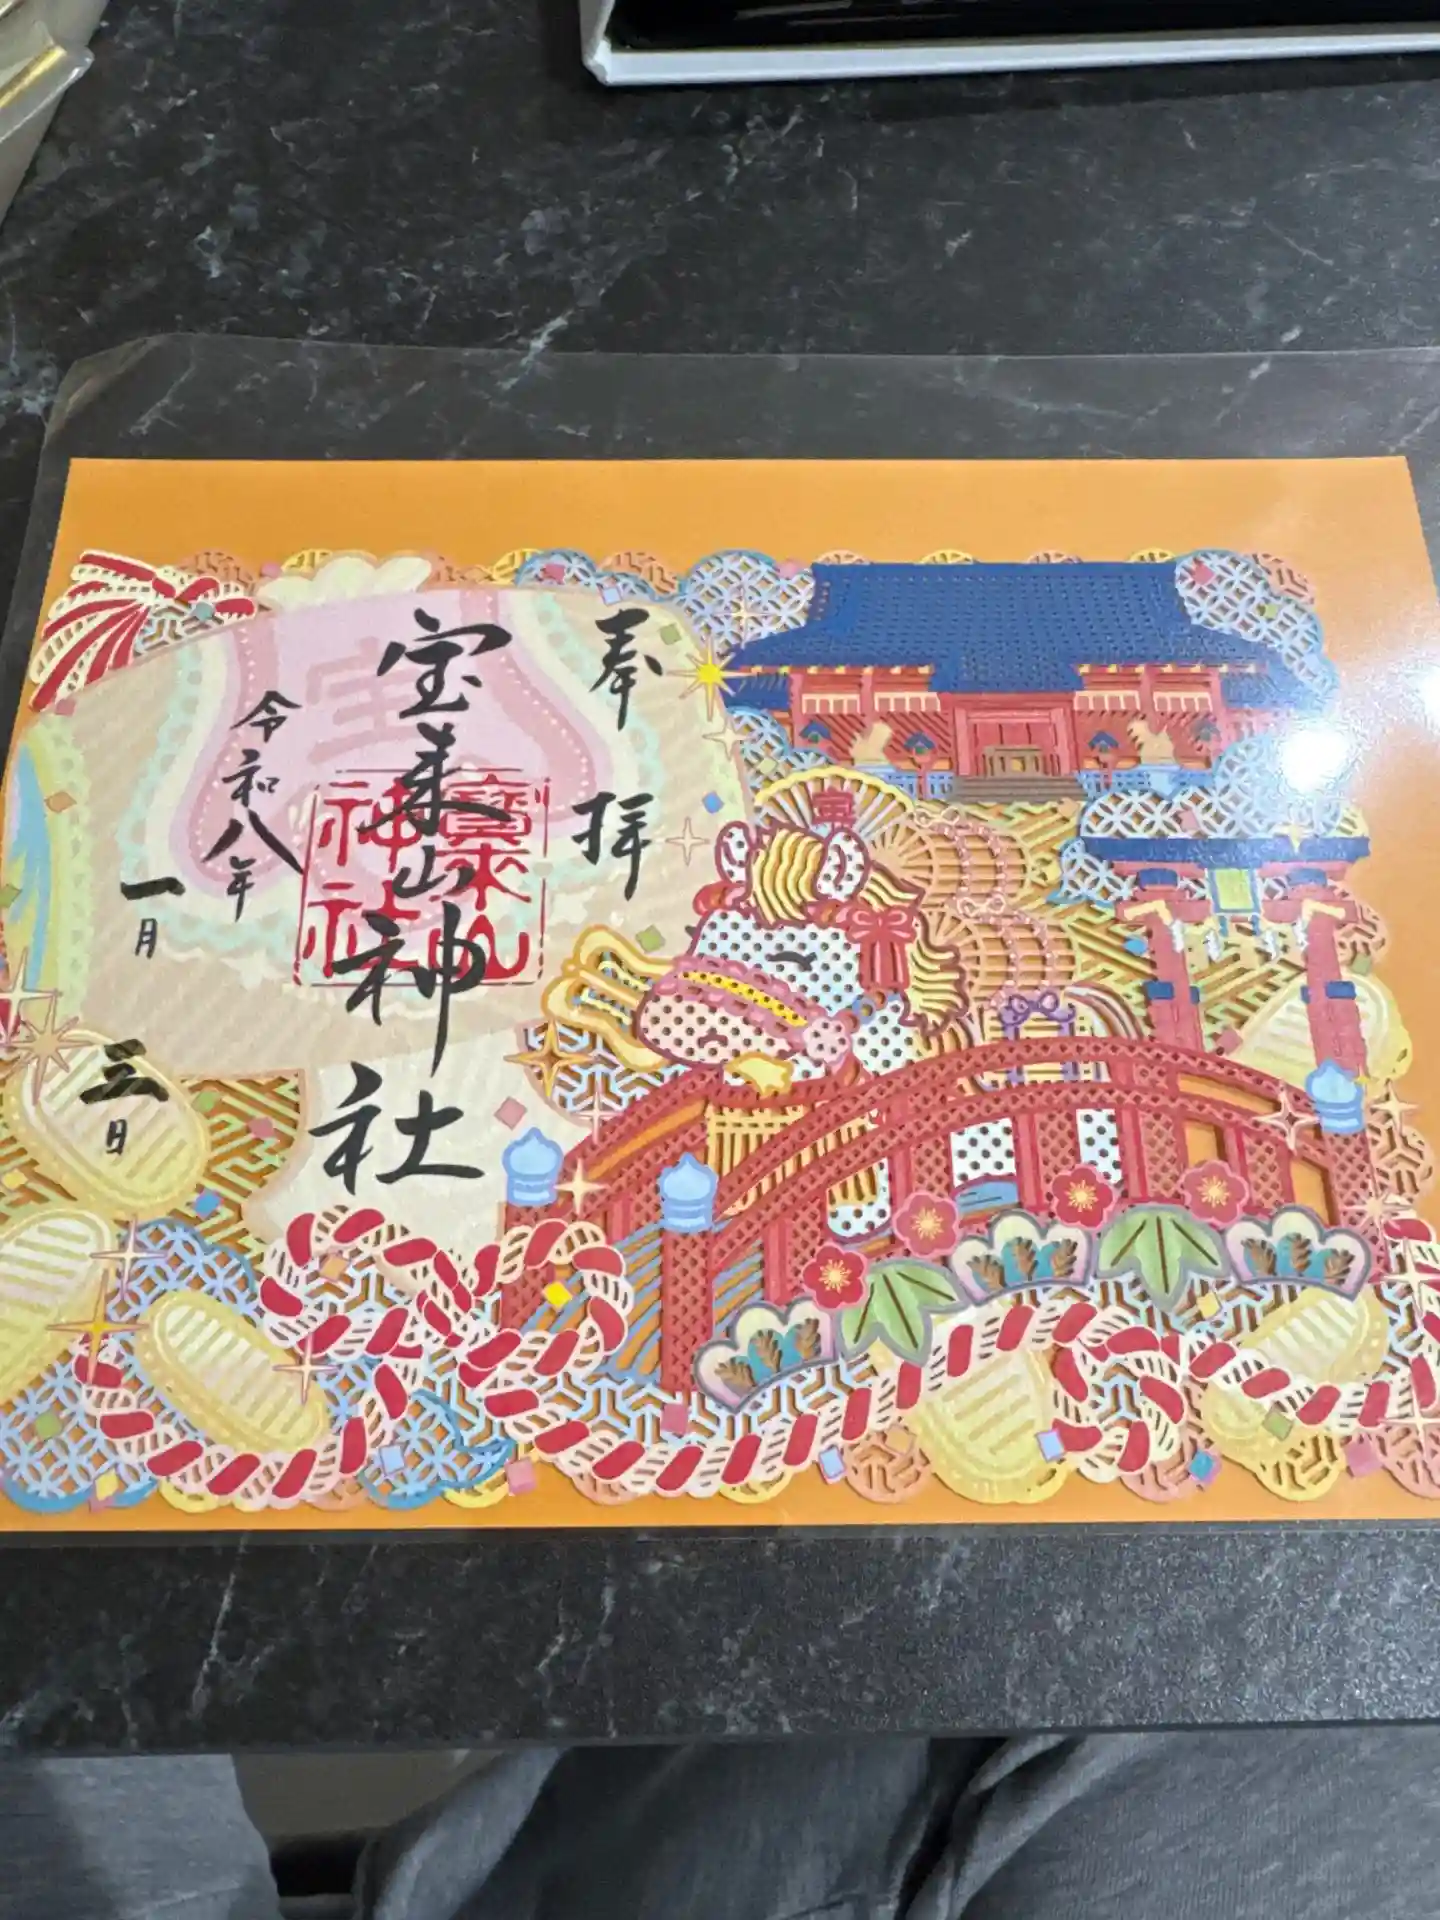 奉拝
宝来山神社
寳来山
神社
令和八年
一月
三日
宝